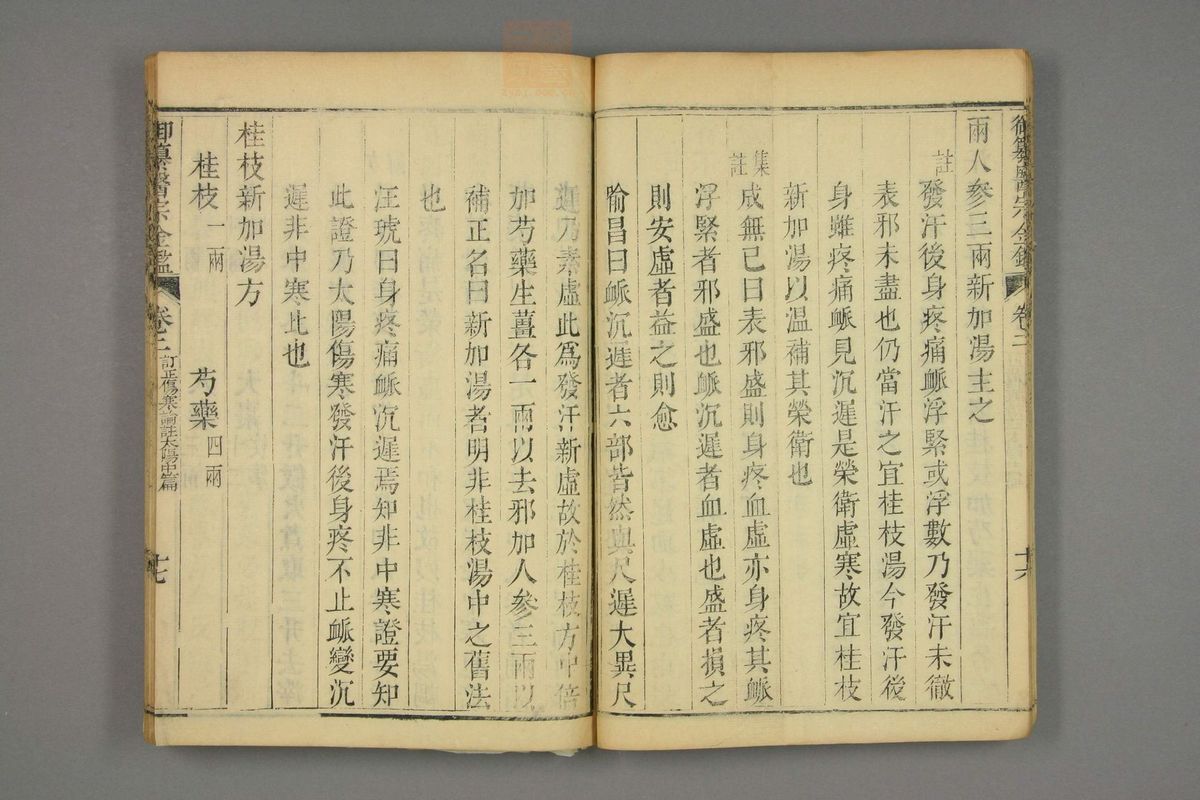 御纂醫宗金鑑 卷二 十六
兩人參三兩新加湯主之
註 發汗後身疼痛脈浮緊或浮數乃發汗未徹
表邪未盡也仍當汗之宜桂枝湯今發汗後
身雖疼痛脈見沉遲是榮衛虛寒故宜桂枝
新加湯以溫補其榮衛也
集註 成無己曰表邪盛則身疼血虛亦身疼其脈
浮緊者邪盛也脈沉遲者血虛也盛者損之
則安虛者益之則愈
喻昌曰脈沉遲者六部皆然與尺遲大異尺
遲乃素虛此為發汗新虛故於桂枝方中倍
加芍藥生薑各一兩以去邪加人參三兩以
補正名曰新加湯者明非桂枝湯中之舊法
也
汪琥曰身疼痛脈沉遲焉知非中寒證要知
此證乃太陽傷寒發汗後身疼不止脈變沉
遲非中寒比也
桂枝新加湯方
桂枝一兩 芍藥四兩
御纂醫宗金鑑 卷二 訂正傷寒論註太陽中篇 十七